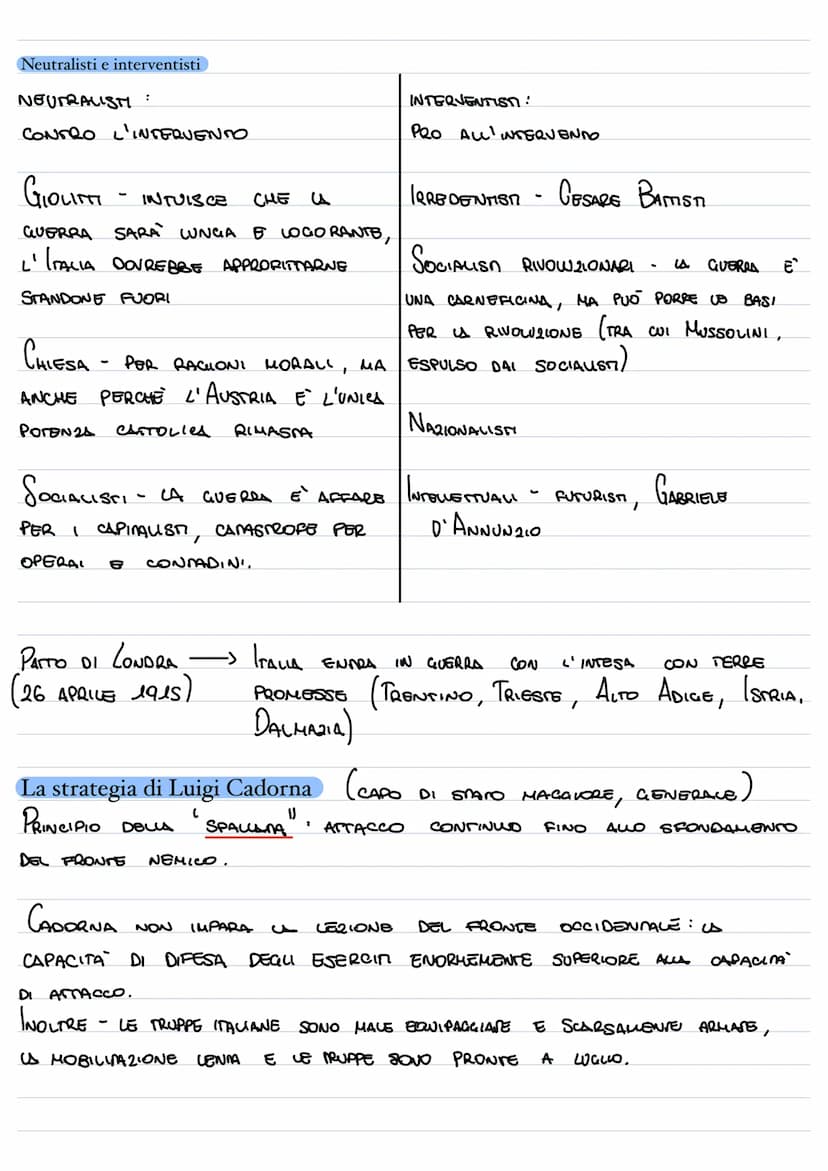 Neutralisti e interventisti
NEUTRALISTI :
CONTRO L'INTERVENTO
GIOLITTI - INTUISCE CHE LA
GUERRA SARÀ LUNGA E LOGORANTE,
L'ITALIA DOVREBBE APPROFITTARNE
STANDONE FUORI
CHIESA - PER RAGIONI MORALI, MA
ANCHE PERCHÈ L'AUSTRIA È L'UNICA
POTENZA CATTOLICA RIMASTA
SOCIALISTI - LA GUERRA È AFFARE
PER I CAPITALISTI, CATASTROFE PER
OPERAI E CONTADINI.
INTERVENTISTI :
PRO ALL'INTERVENTO
IRREDENTISTI - CESARE BATTISTI
SOCIALISTI RIVOLUZIONARI - LA GUERRA È
UNA CARNEFICINA, MA PUÒ PORRE LE BASI
PER LA RIVOLUZIONE (TRA CUI MUSSOLINI,
ESPULSO DAI SOCIALISTI)
NAZIONALISTI
INTELLETTUALI - FUTURISTI, GABRIELE
D'ANNUNZIO
PATTO DI LONDRA → ITALIA ENTRA IN GUERRA CON L'INTESA CON TERRE
(26 APRILE 1915) PROMESSE (TRENTINO, TRIESTE, ALTO ADIGE, ISTRIA,
DALMAZIA)
La strategia di Luigi Cadorna (CAPO DI STATO MAGGIORE, GENERALE)
PRINCIPIO DELLA "SPALLATA": ATTACCO CONTINUO FINO ALLO SFONDAMENTO
DEL FRONTE NEMICO.
CADORNA NON IMPARA LA LEZIONE DEL FRONTE OCCIDENTALE : LA
CAPACITÀ DI DIFESA DEGLI ESERCITI ENORMEMENTE SUPERIORE ALLA CAPACITÀ
DI ATTACCO.
INOLTRE - LE TRUPPE ITALIANE SONO MALE EQUIPAGGIATE E SCARSAMENTE ARMATE,
LA MOBILITAZIONE LENTA E LE TRUPPE SONO PRONTE A LUGLIO.